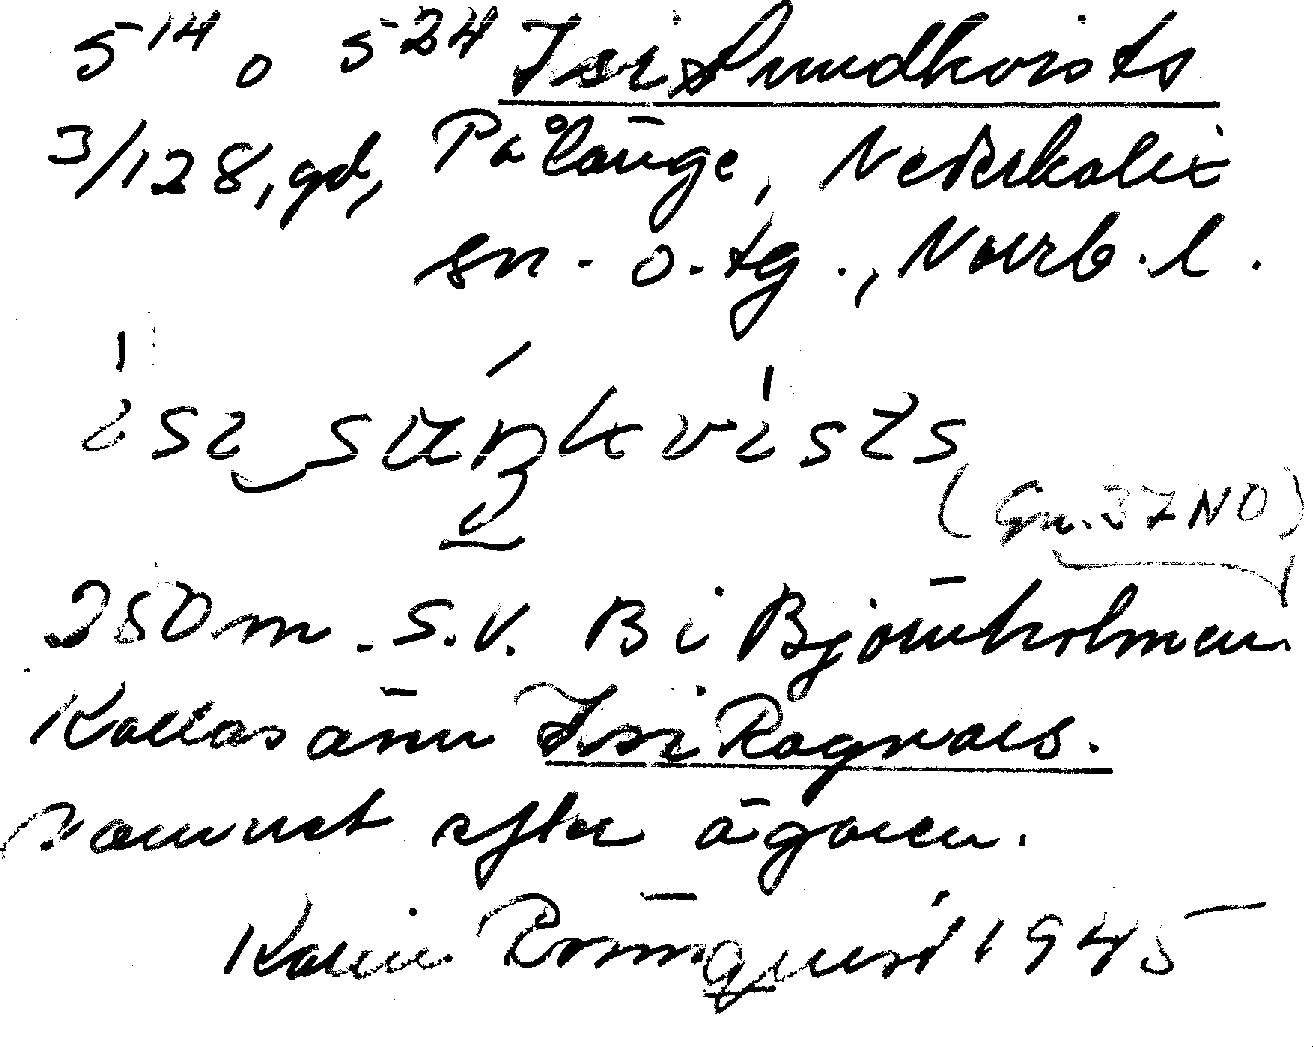 5 14 o 5 24 Isi Sundkvists
3/128, gd, Pålänge, Nederkalix
sn. o. tg., Norrb. l.
ísi súṇkvísts
(Gr. 37 NO)
250 m. S.V. B i Björnholmen.
Kallas även Isi Ragnars.
namnet efter ägaren.
Karin Rönnqvist 1945